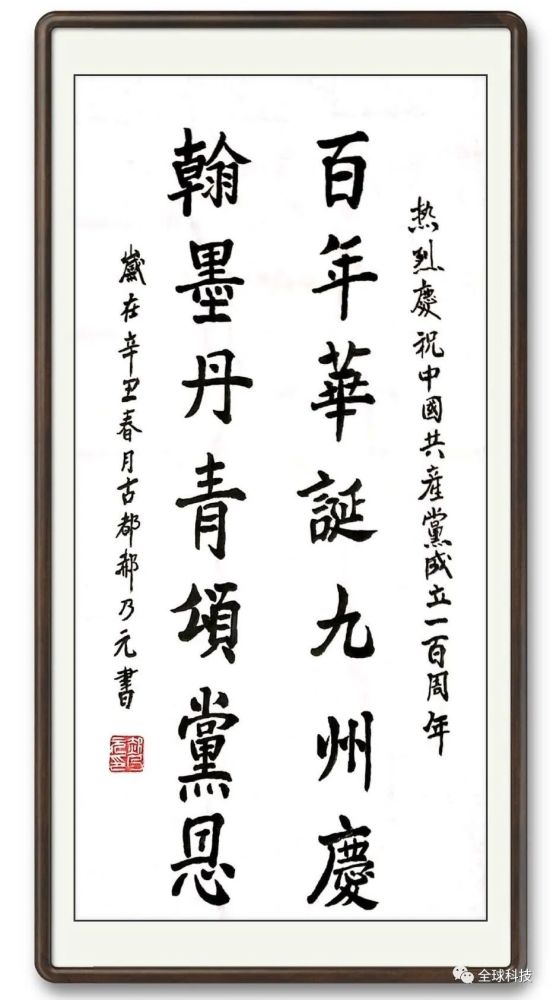 热烈慶祝中國共產黨成立一百周年
百年華誕九州慶
翰墨丹青頌黨恩
歲在辛丑春月古都郝乃元書
全球科技